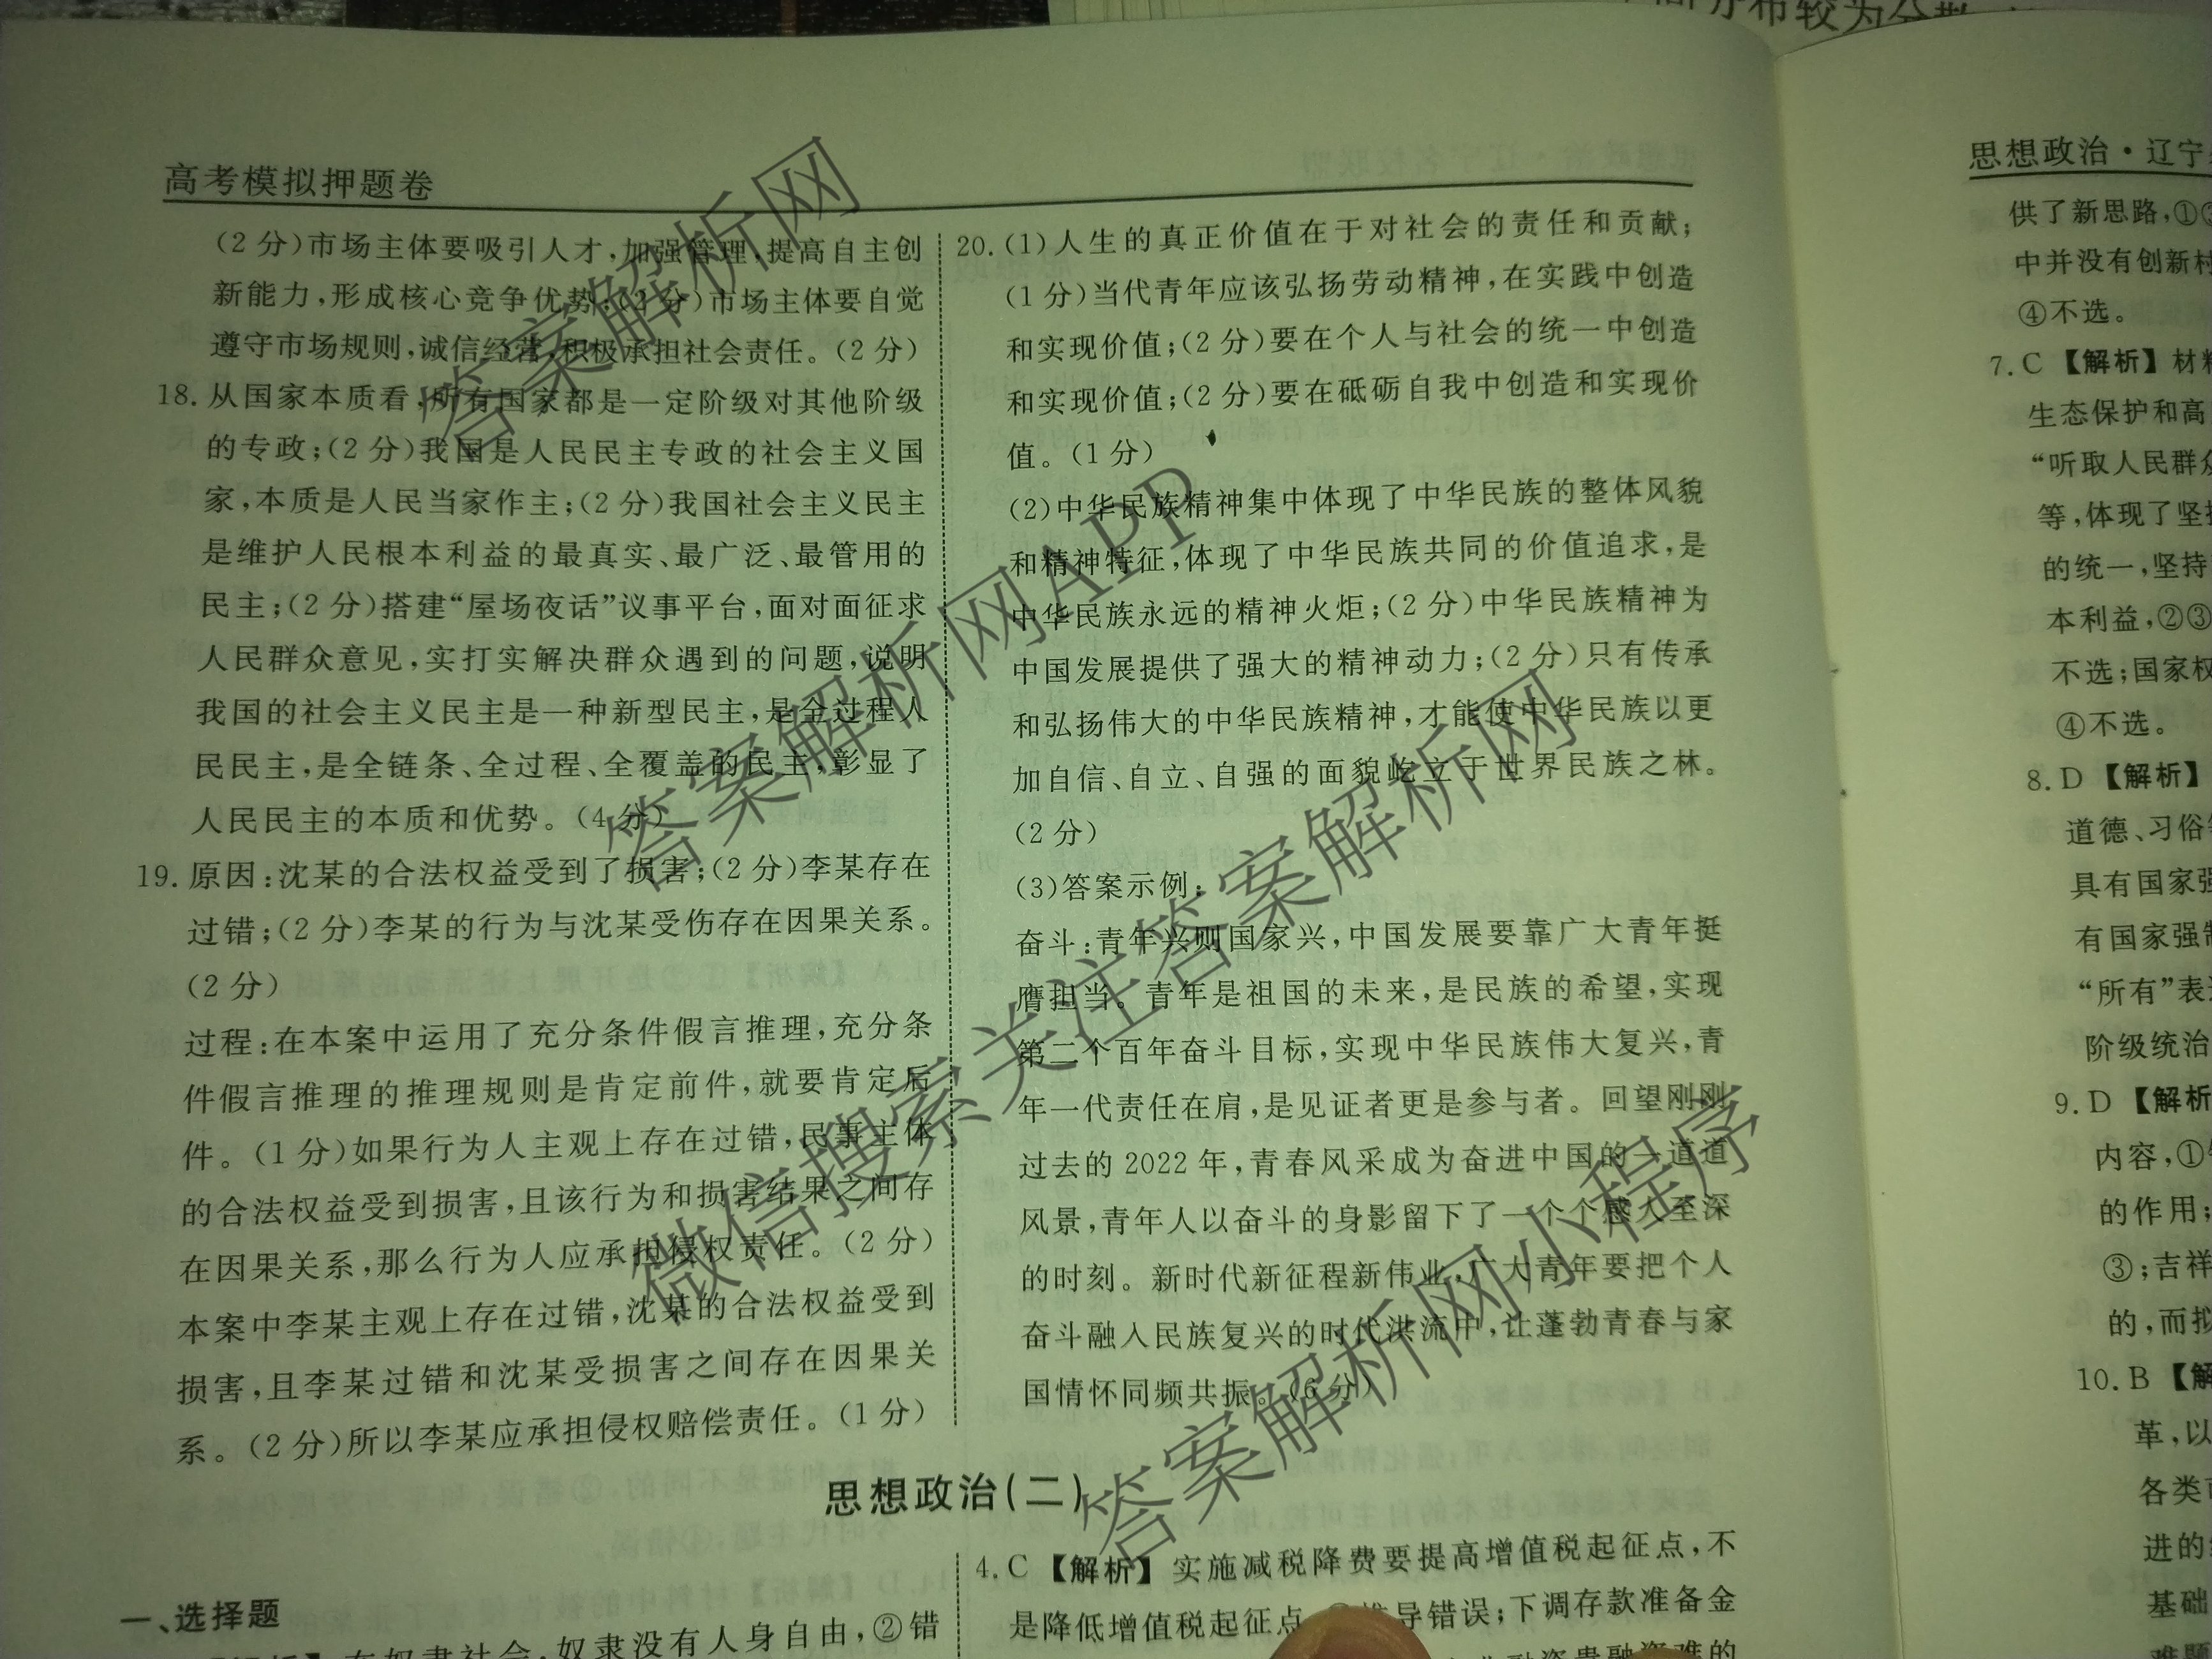 布较为分散
高考模拟押题卷
(2分)市场主体要吸引人才,加强管理,提高自主创
新能力,形成核心竞争优势;(2分)市场主体要自觉
遵守市场规则,诚信经营,积极承担社会责任。(2分)
18. 从国家本质看,所有国家都是一定阶级对其他阶级
的专政;(2分)我国是人民民主专政的社会主义国
家,本质是人民当家作主;(2分)我国社会主义民主
是维护人民根本利益的最真实、最广泛、最管用的
民主;(2分)搭建“屋场夜话”议事平台,面对面征求
人民群众意见,实打实解决群众遇到的问题,说明
我国的社会主义民主是一种新型民主,是全过程人
民民主,是全链条、全过程、全覆盖的民主,彰显了
人民民主的本质和优势。(4分)
19. 原因:沈某的合法权益受到了损害;(2分)李某存在
过错;(2分)李某的行为与沈某受伤存在因果关系。
(2分)
过程:在本案中运用了充分条件假言推理,充分条
件假言推理的推理规则是肯定前件,就要肯定后
件。(1分)如果行为人主观上存在过错,民事主体
的合法权益受到损害,且该行为和损害结果之间存
在因果关系,那么行为人应承担侵权责任。(2分)
本案中李某主观上存在过错,沈某的合法权益受到
损害,且李某过错和沈某受损害之间存在因果关
系。(2分)所以李某应承担侵权赔偿责任。(1分)
20. (1)人生的真正价值在于对社会的责任和贡献;
(1分)当代青年应该弘扬劳动精神,在实践中创造
和实现价值;(2分)要在个人与社会的统一中创造
和实现价值;(2分)要在砥砺自我中创造和实现价
值。(1分)
(2)中华民族精神集中体现了中华民族的整体风貌
和精神特征,体现了中华民族共同的价值追求,是
中华民族永远的精神火炬;(2分)中华民族精神为
中国发展提供了强大的精神动力;(2分)只有传承
和弘扬伟大的中华民族精神,才能使中华民族以更
加自信、自立、自强的面貌屹立于世界民族之林。
(2分)
(3)答案示例:
奋斗:青年兴则国家兴,中国发展要靠广大青年挺
膺担当。青年是祖国的未来,是民族的希望,实现
第二个百年奋斗目标,实现中华民族伟大复兴,青
年一代责任在肩,是见证者更是参与者。回望刚刚
过去的2022年,青春风采成为奋进中国的一道道
风景,青年人以奋斗的身影留下了一个个感人至深
的时刻。新时代新征程新伟业,广大青年要把个人
奋斗融入民族复兴的时代洪流中,让蓬勃青春与家
国情怀同频共振。(6分)
思想政治(二)
一、选择题
在奴隶社会,奴隶没有人身自由,②错
4. C 【解析】 实施减税降费要提高增值税起征点,不
是降低增值税起征点
推导错误;下调存款准备金
融资贵融资难的
思想政治·辽宁
供了新思路,①③
中并没有创新
④不选。
7. C 【解析】材
生态保护和高
“听取人民群众
等,体现了坚
的统一,坚持
本利益,②③
不选;国家权
④不选。
8. D 【解析】
道德、习俗
具有国家强
有国家强制
“所有”表
阶级统治
9. D 【解析
内容,①
的作用;
③;吉祥
的,而
10. B 【解
革,以
各类
进的
基础
难题
答案解析网
答案解析网APP
微信搜索关注答案解析网
答案解析网小程序